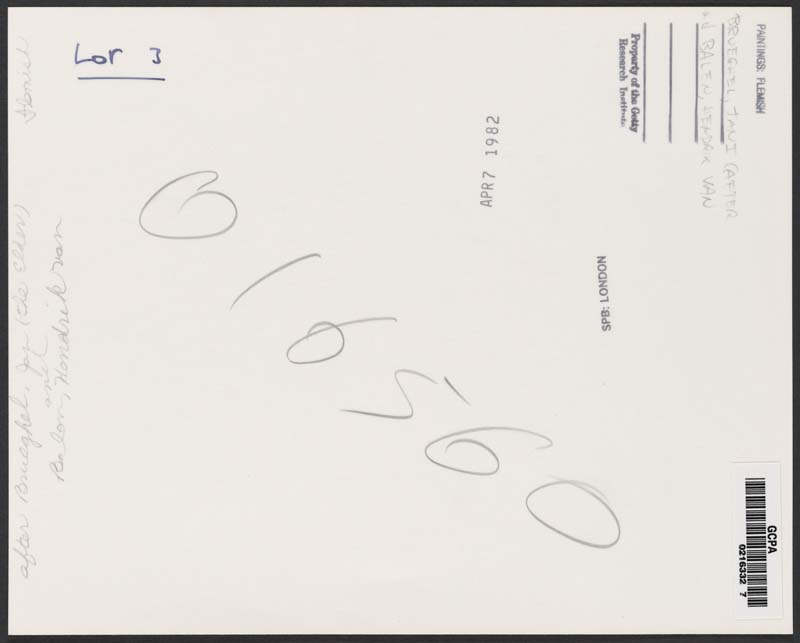 Lot 3
PAINTINGS: FLEMISH
BRUEGHEL, JAN I (AFTER
BALEN, HENDRIK VAN
Property of the Getty
Research Institute
APR 7 1982
SPB: LONDON
Flemish
after Brueghel, Jan (the Elder)
and
Balen, Hendrik van
GCPA
0216332 7